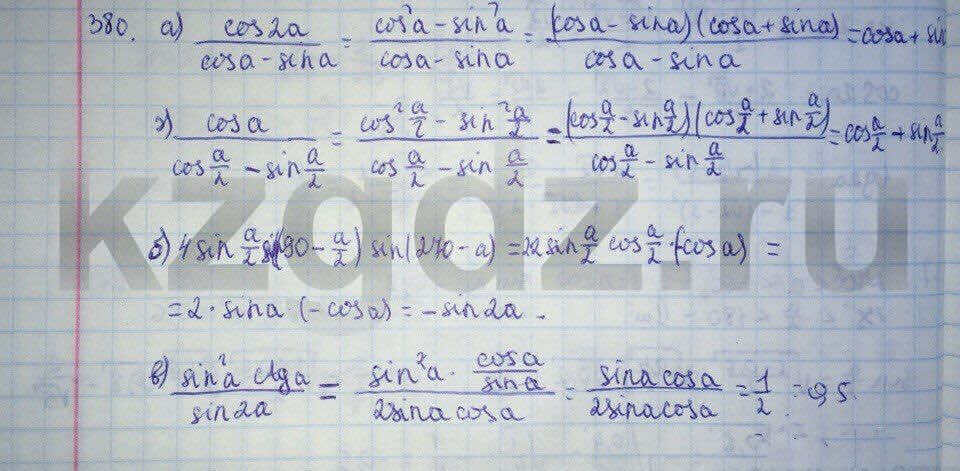 380. а) cos2a / (cosa - sina) = (cos²a - sin²a) / (cosa - sina) = (cosa - sina)(cosa + sina) / (cosa - sina) = cosa + sin
г) cosa / (cos a/2 - sin a/2) = (cos² a/2 - sin² a/2) / (cos a/2 - sin a/2) = (cos a/2 - sin a/2)(cos a/2 + sin a/2) / (cos a/2 - sin a/2) = cos a/2 + sin a/2
kzgdz.ru
б) 4 sin a/2 si(90 - a/2) sin(270 - a) = 2·2 sin a/2 cos a/2 · (-cosa) =
= 2 · sina · (-cosa) = -sin2a.
в) sin²a ctga / sin2a = (sin²a · cosa/sina) / 2sinacosa = sinacosa / 2sinacosa = 1/2 = 0,5.